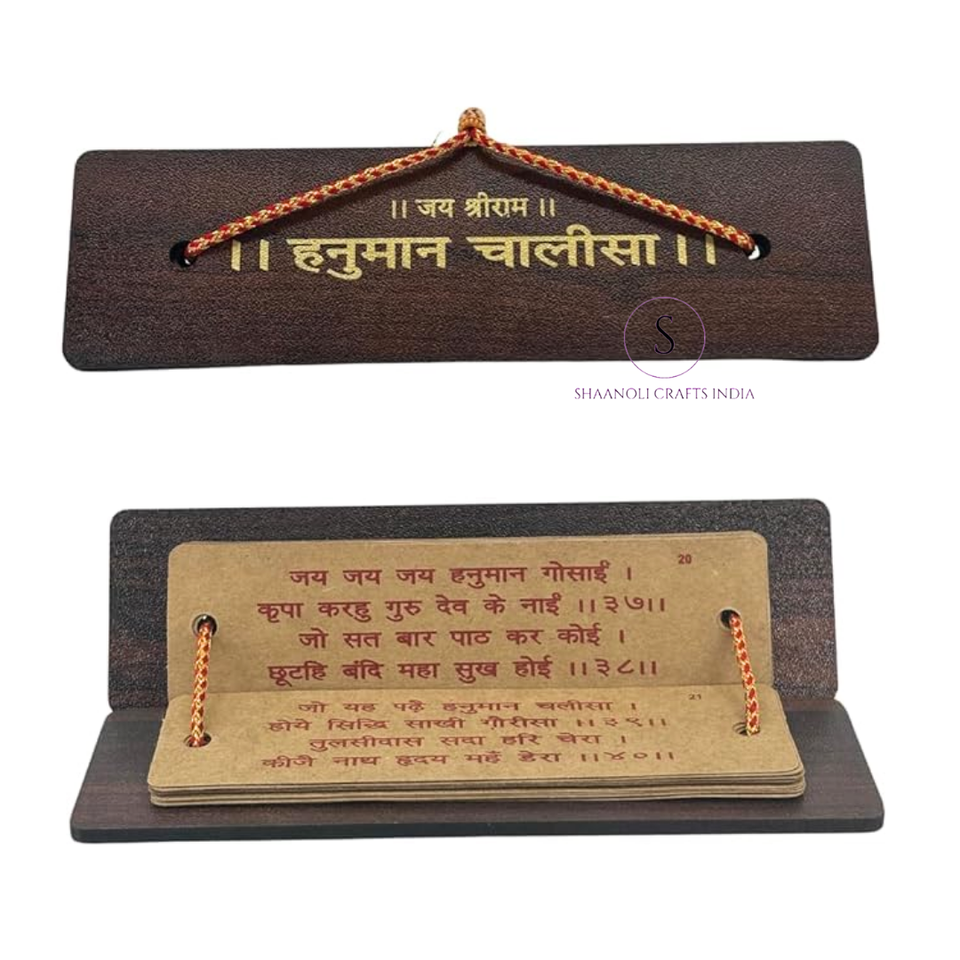 ।। जय श्रीराम ।।
।। हनुमान चालीसा ।।
S
SHAANOLI CRAFTS INDIA
20
जय जय जय हनुमान गोसाईं ।
कृपा करहु गुरु देव के नाईं ।।३७।।
जो सत बार पाठ कर कोई ।
छूटहि बंदि महा सुख होई ।।३८।।
21
जो यह पढ़ै हनुमान चलीसा ।
होये सिद्धि साखी गौरीसा ।।३९।।
तुलसीदास सदा हरि चेरा ।
कीजै नाथ हृदय महँ डेरा ।।४०।।